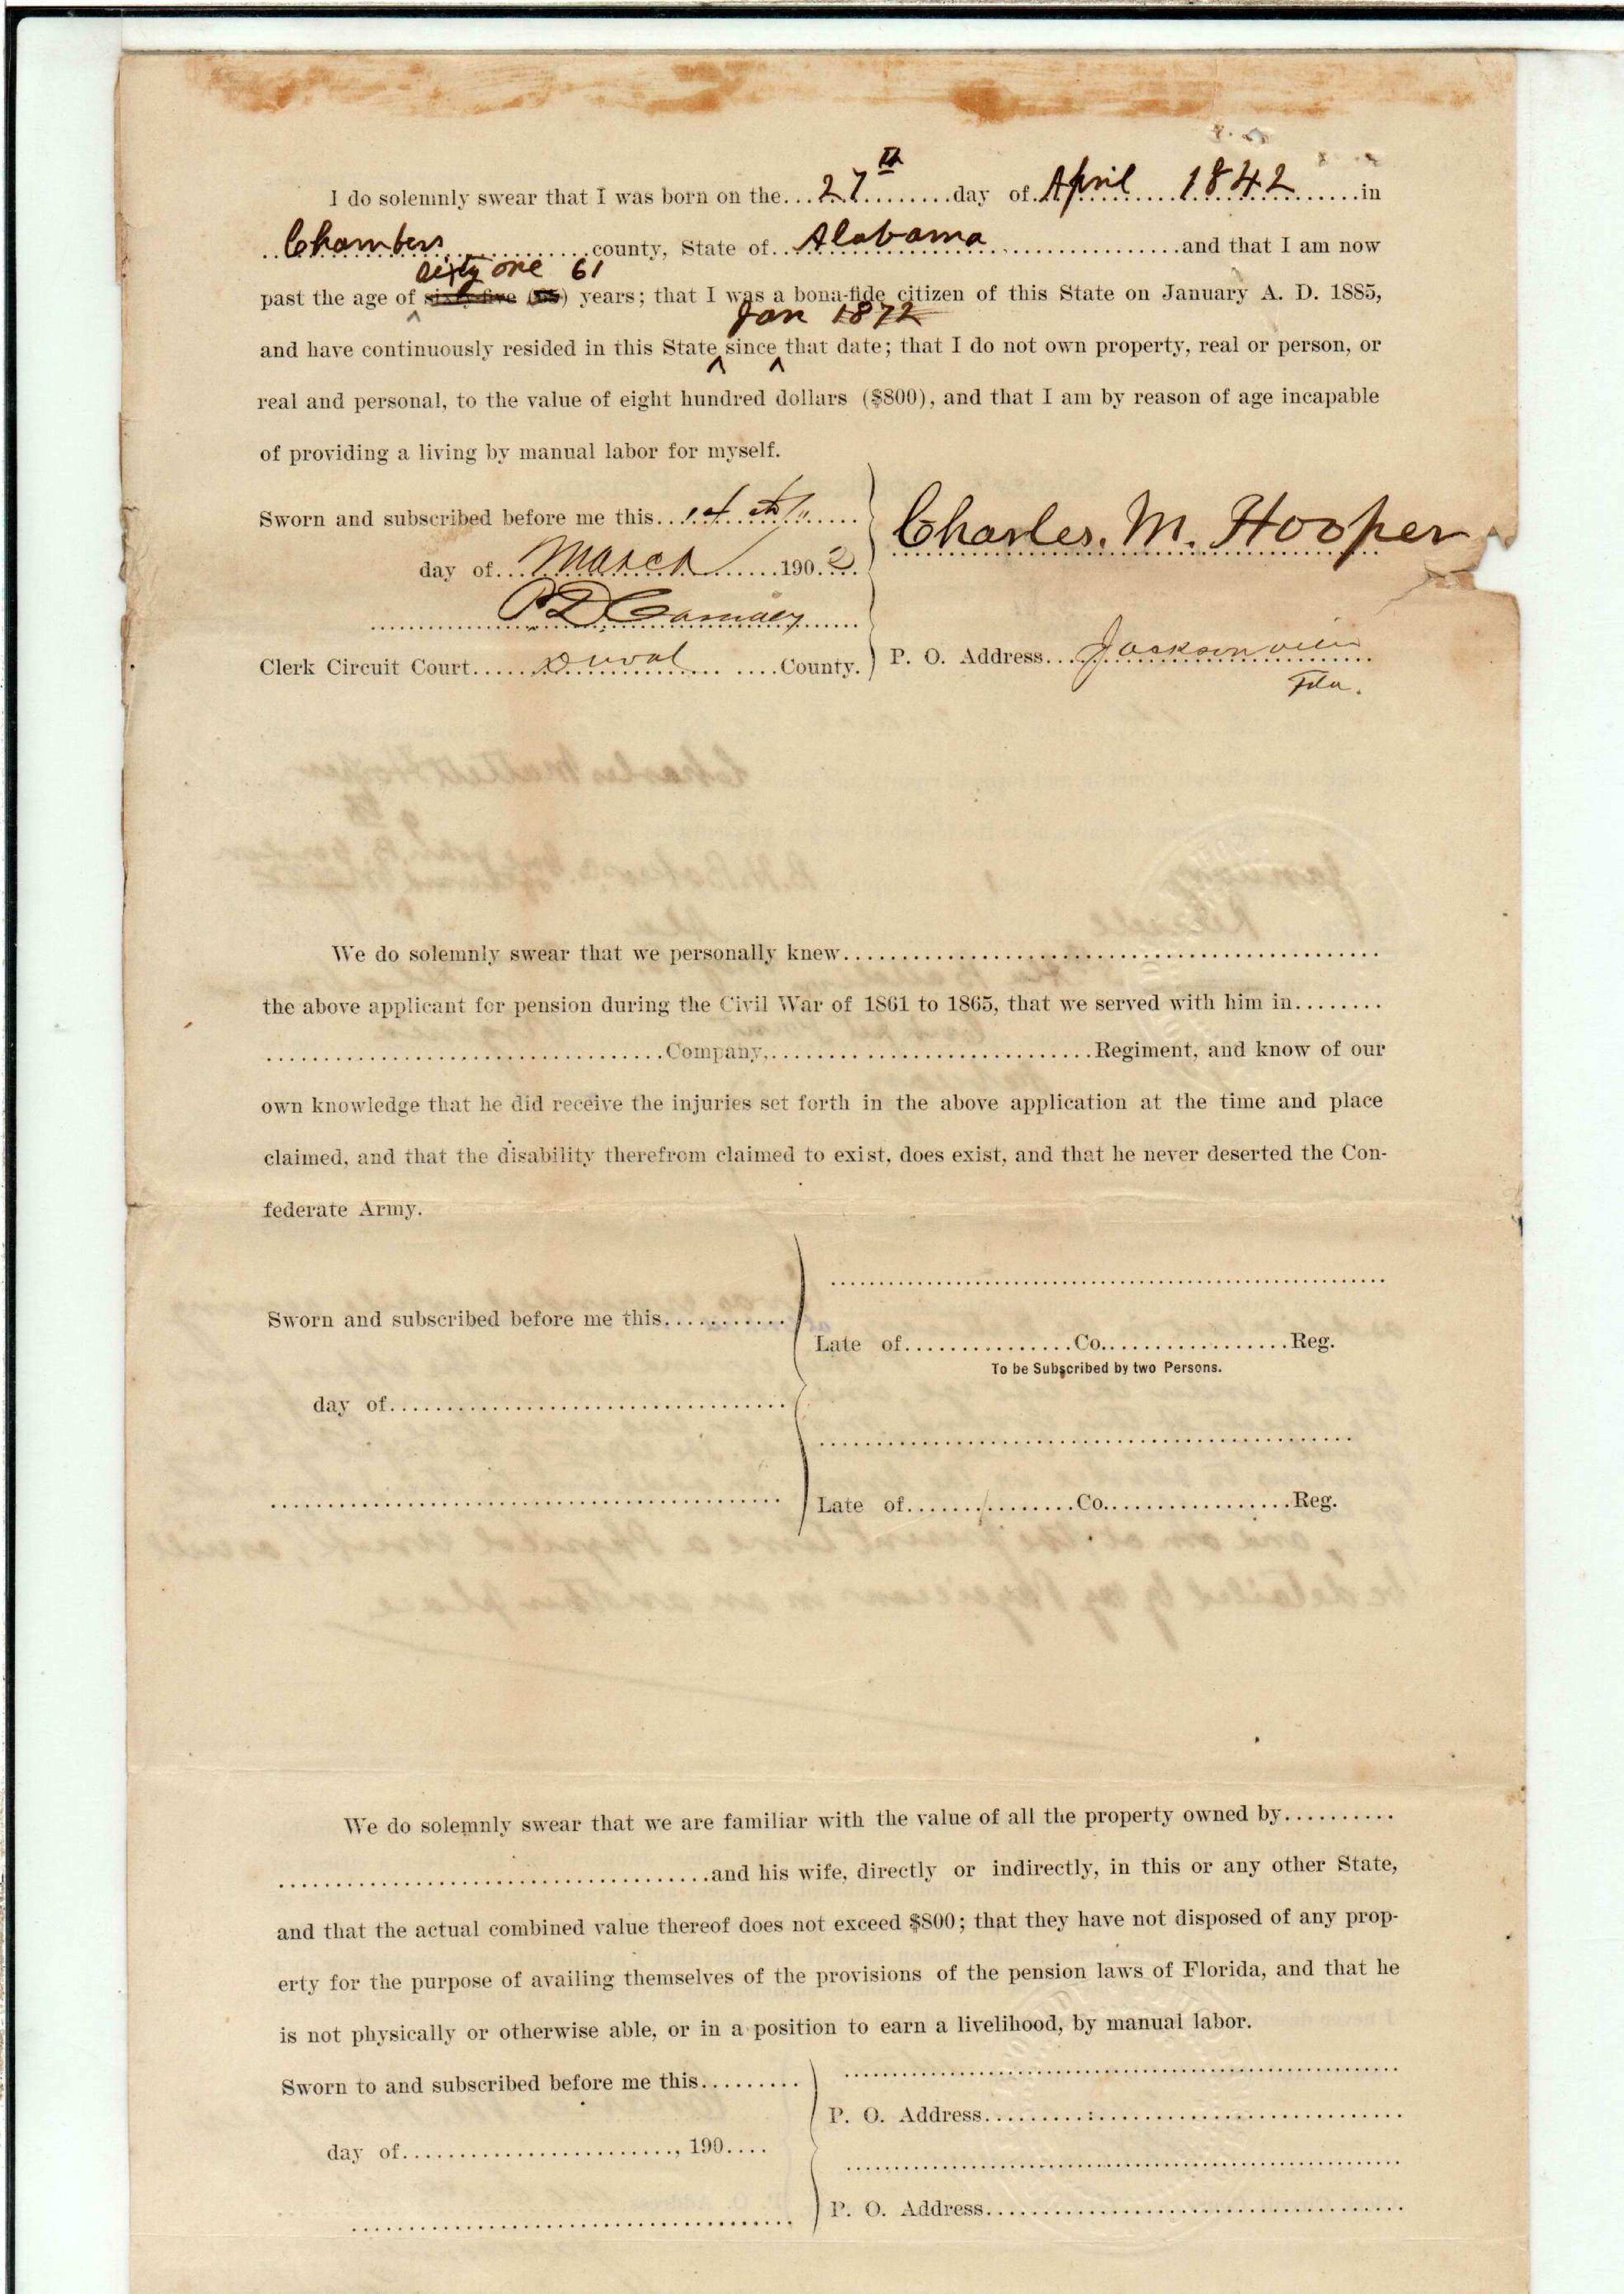 I do solemnly swear that I was born on the...27th........day of.April....1842......in
..Chambers..............county, State of..Alabama..................and that I am now
sixty one 61
past the age of sixty-five (65) years; that I was a bona-fide citizen of this State on January A. D. 1885,
Jan 1872
and have continuously resided in this State since that date; that I do not own property, real or person, or
real and personal, to the value of eight hundred dollars ($800), and that I am by reason of age incapable
of providing a living by manual labor for myself.
Sworn and subscribed before me this..14th......
day of...March.......190.2.
Charles. M. Hooper
Clerk Circuit Court......Duval.........County.
P. O. Address...Jacksonville
Fla.
We do solemnly swear that we personally knew................................................
the above applicant for pension during the Civil War of 1861 to 1865, that we served with him in........
...................................Company,............................Regiment, and know of our
own knowledge that he did receive the injuries set forth in the above application at the time and place
claimed, and that the disability therefrom claimed to exist, does exist, and that he never deserted the Con-
federate Army.
Sworn and subscribed before me this...........
day of..................................
Late of...............Co.................Reg.
To be Subscribed by two Persons.
Late of...............Co.................Reg.
We do solemnly swear that we are familiar with the value of all the property owned by..........
......................................and his wife, directly or indirectly, in this or any other State,
and that the actual combined value thereof does not exceed $800; that they have not disposed of any prop-
erty for the purpose of availing themselves of the provisions of the pension laws of Florida, and that he
is not physically or otherwise able, or in a position to earn a livelihood, by manual labor.
Sworn to and subscribed before me this.........
day of........................, 190....
P. O. Address.....................................
P. O. Address.....................................